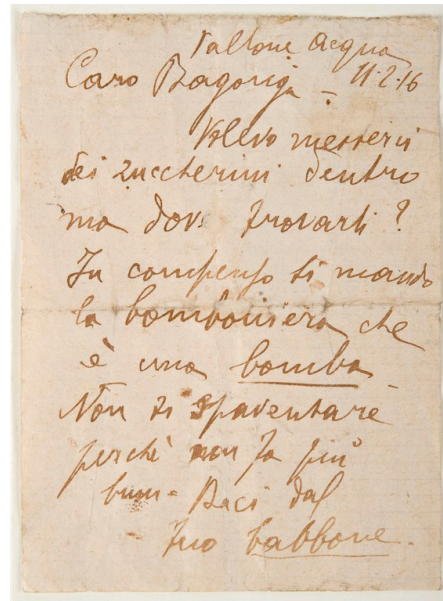 Vallone Acqua
11-2-16
Caro Bagonga -
Volevo metterci
dei zuccherini dentro
ma dove trovarli?
In compenso ti mando
la bomboniera che
è una bomba -
Non ti spaventare
perchè non fa più
bum - Baci dal
tuo babbone.